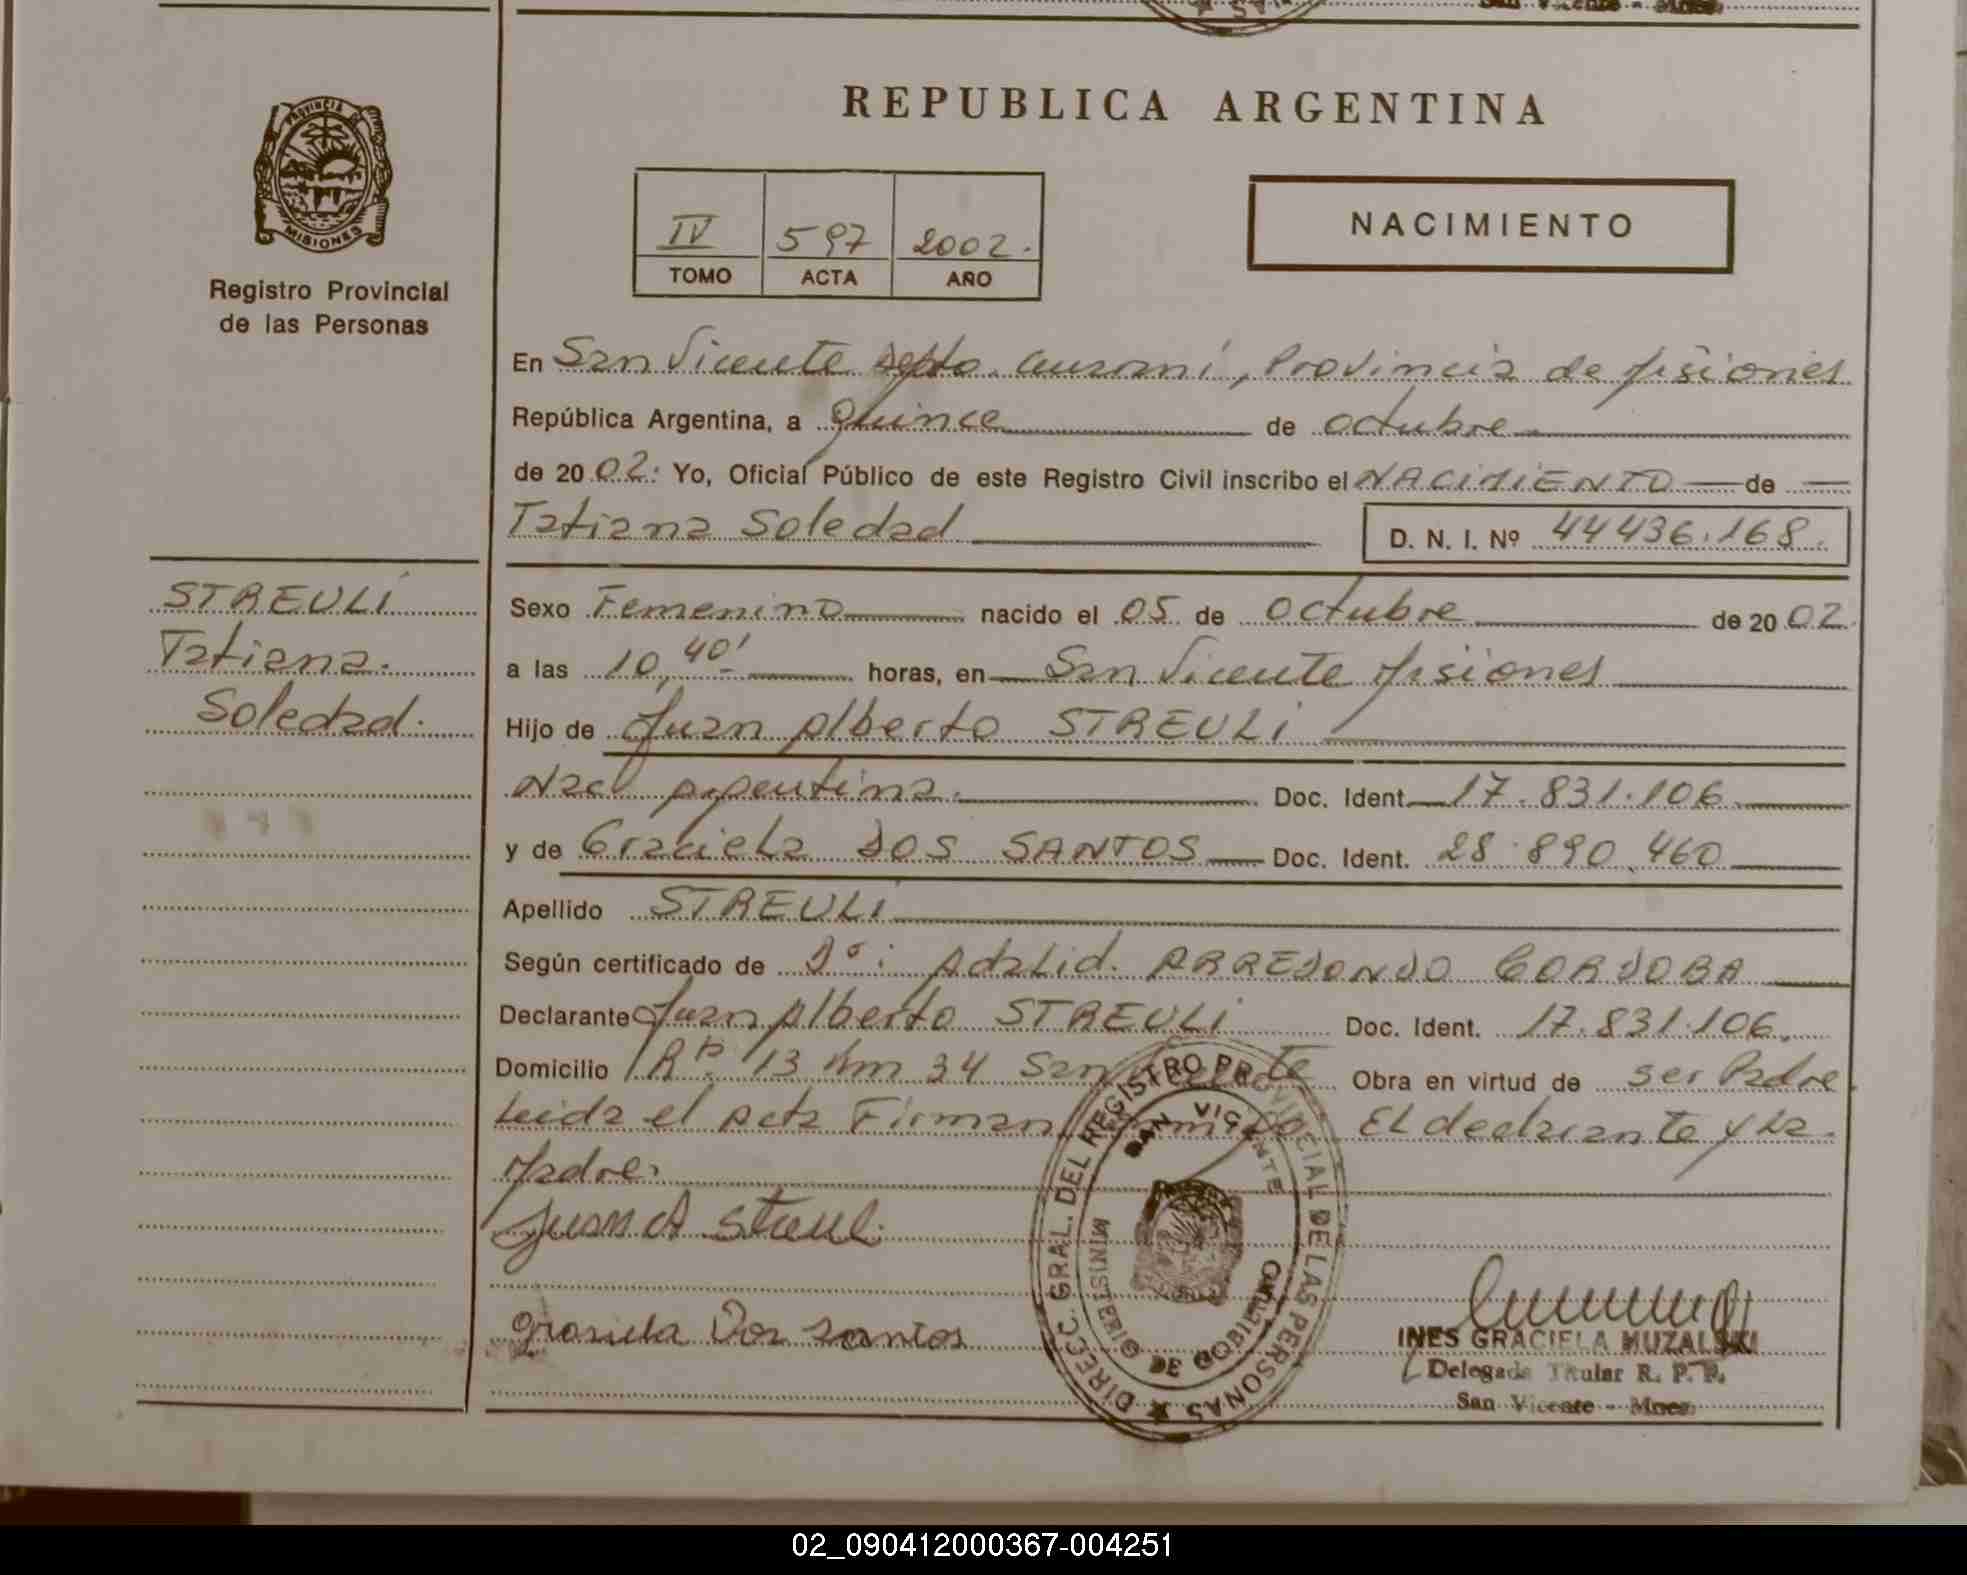 San Vicente - Mnes.
REPUBLICA ARGENTINA
PROVINCIA DE
MISIONES
Registro Provincial
de las Personas
IV 597 2002.
TOMO ACTA AÑO
NACIMIENTO
En San Vicente Depto. Guaraní, Provincia de Misiones
República Argentina, a quince de octubre
de 2002. Yo, Oficial Público de este Registro Civil inscribo el NACIMIENTO de
Tatiana Soledad D. N. I. Nº 44436.168.
STREULI
Tatiana.
Soledad.
Sexo Femenino nacido el 05 de octubre de 2002.
a las 10,40' horas, en San Vicente Misiones
Hijo de Juan Alberto STREULI
Nac. Argentina. Doc. Ident. 17.831.106
y de Graciela DOS SANTOS Doc. Ident. 28.890.460
Apellido STREULI
Según certificado de Dº: Adalid. ARREDONDO CORDOBA
Declarante Juan Alberto STREULI Doc. Ident. 17.831.106.
Domicilio Rta. 13 Km 34 San Vicente Obra en virtud de ser Padre.
Leida el Acta Firman conmigo El declarante y la
Madre.
Juan A Streuli
Grasiela Dos santos
DIRECC. GRAL. DEL REGISTRO PROVINCIAL DE LAS PERSONAS
SAN VICENTE
MINISTERIO DE GOBIERNO
INES GRACIELA MUZALSKI
Delegada Titular R. P. P.
San Vicente - Mnes.
02_090412000367-004251